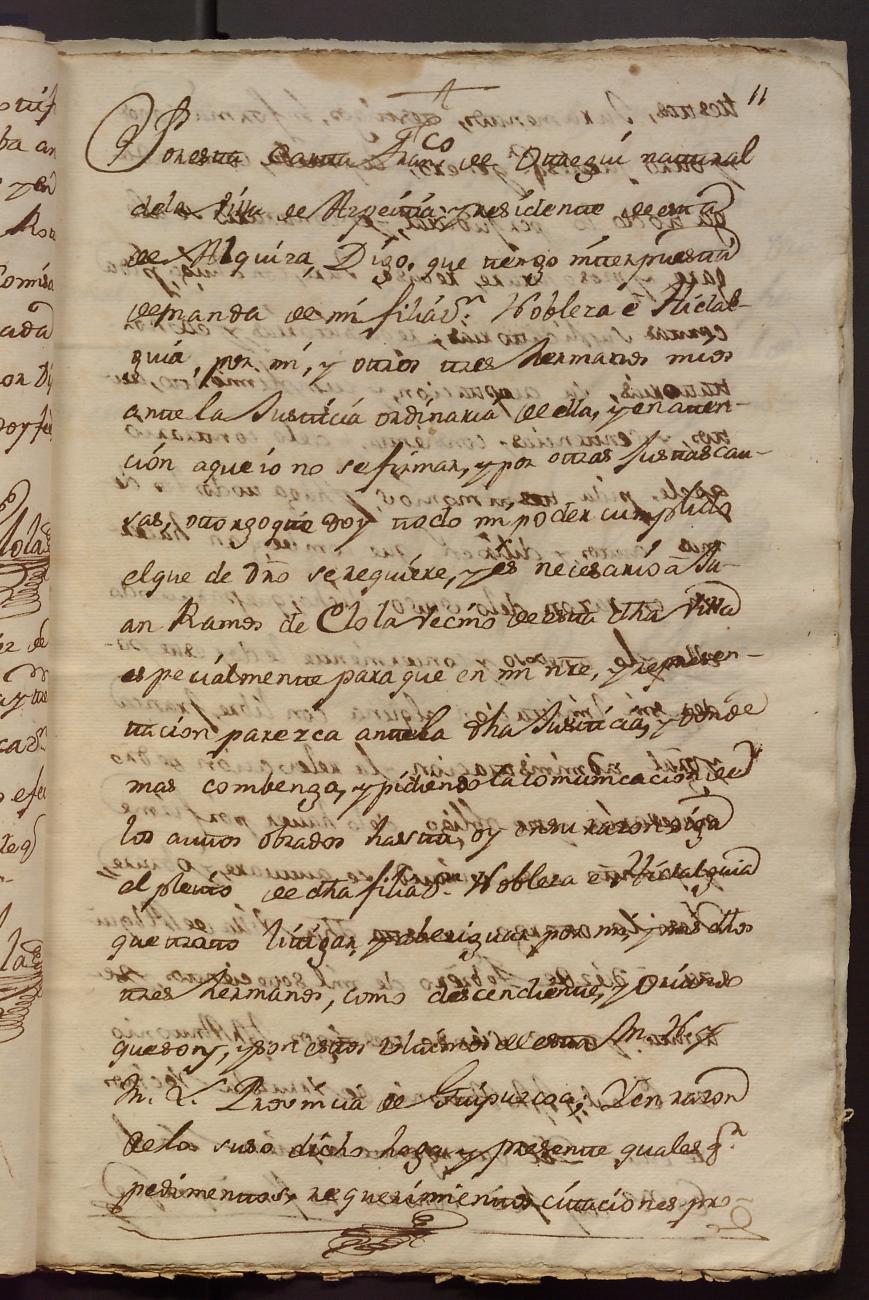 11
Por esta Carta Franco de Otaegui natural
de la Villa de Azpeitia y residente de esta
de Alquiza, Digo, que tengo interpuesta
demanda de mi filiaon. Nobleza e Hidal-
guia, por mi, y otros tres hermanos mios
ante la Justicia ordinaria de ella, y en aten-
ción a que io no se firmar, y por otras Justas cau-
sas, otorgo que doy todo mi poder cumplido
el que de dro se requiere, y es necesario a Ju-
an Ramos de Elola Vecino de esta dha Villa
especialmente para que en mi nre, y represen-
tacion parezca ante la dha Justicia, y donde
mas combenga, y pidiendo la comunicacion de
los autos obrados hasta oy en su razon siga
el pleito de dha filiaon. Nobleza e Hidalguia
que trato litigar, y aberiguar por mi, y mis dhos
tres hermanos, como descendiente, y Oriundo
que soy, y son estos de esta M. N. y
M. L. Provincia de Guipuzcoa; Y en razon
de lo suso dicho haga, y presente quales qr.
pedimentos, requerimientos citaciones pro-